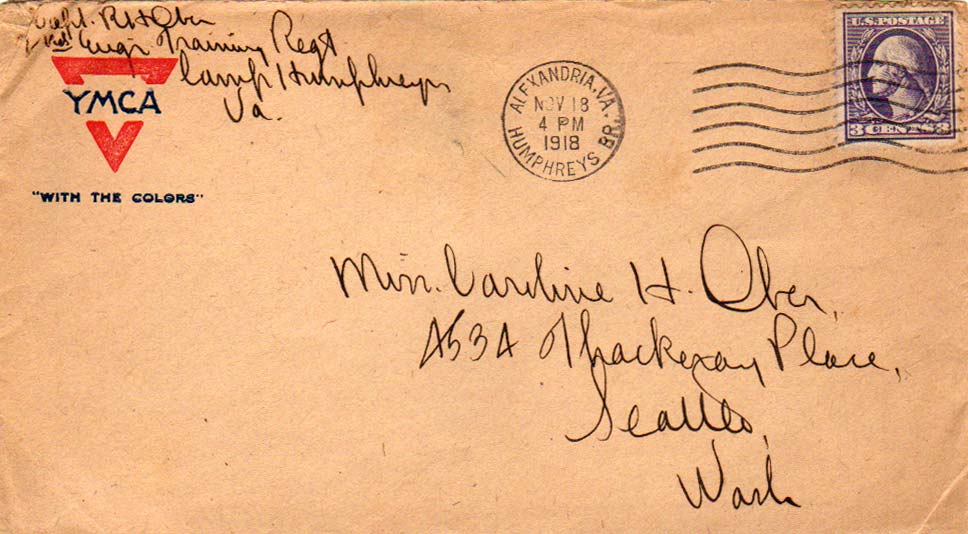 Capt. R H Ober
Engr Training Regt
Camp Humphreys
Va.
YMCA
"WITH THE COLORS"
ALEXANDRIA, VA.
NOV 18
4 PM
1918
HUMPHREYS BR.
U.S. POSTAGE
3 CENTS 3
Miss. Caroline H. Ober,
4534 Thackeray Place,
Seattle,
Wash